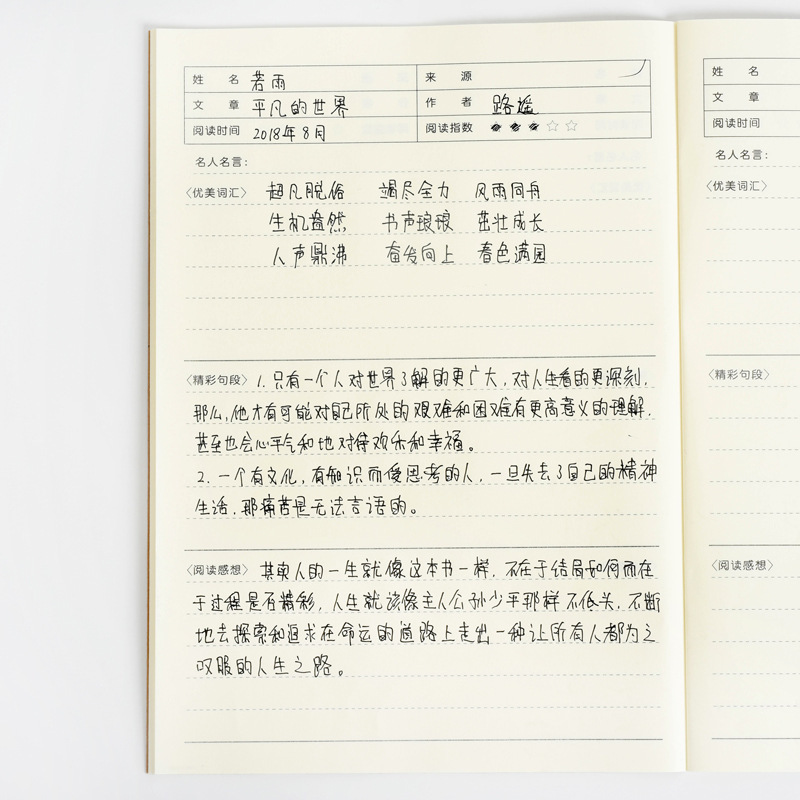 姓 名 若雨 来 源
文 章 平凡的世界 作 者 路遥
阅读时间 2018年8月 阅读指数 ★★★☆☆
名人名言:
〈优美词汇〉 超凡脱俗 竭尽全力 风雨同舟
生机盎然 书声琅琅 茁壮成长
人声鼎沸 奋发向上 春色满园
〈精彩句段〉 1.只有一个人对世界了解的更广大,对人生看的更深刻,
那么,他才有可能对自己所处的艰难和困难有更高意义的理解,
甚至也会心平气和地对待欢乐和幸福。
2.一个有文化,有知识而爱思考的人,一旦失去了自己的精神
生活,那痛苦是无法言语的。
〈阅读感想〉 其实人的一生就像这本书一样,不在于结局如何而在
于过程是否精彩,人生就该像主人公孙少平那样不低头,不断
地去探索和追求在命运的道路上走出一种让所有人都为之
叹服的人生之路。
姓 名
文 章
阅读时间
名人名言:
〈优美词汇〉
〈精彩句段〉
〈阅读感想〉